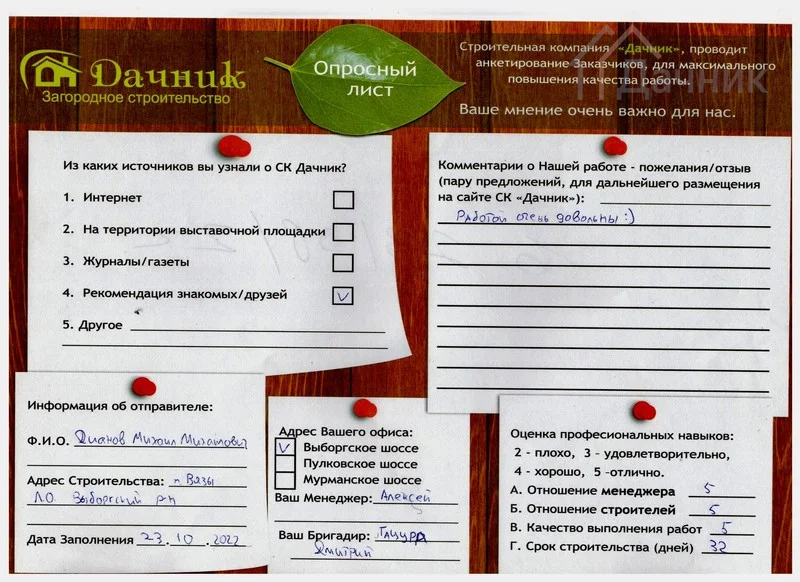 Дачник
Загородное строительство
Опросный
лист
Строительная компания «Дачник», проводит
анкетирование Заказчиков, для максимального
повышения качества работы.
Дачник
Ваше мнение очень важно для нас.
Из каких источников вы узнали о СК Дачник?
1. Интернет
2. На территории выставочной площадки
3. Журналы/газеты
4. Рекомендация знакомых/друзей V
5. Другое
Комментарии о Нашей работе - пожелания/отзыв
(пару предложений, для дальнейшего размещения
на сайте СК «Дачник»):
Работой очень довольны :)
Информация об отправителе:
Ф.И.О. Дианов Михаил Михайлович
Адрес Строительства: п. Вязы
Л.О. Выборгский р-н
Дата Заполнения 23.10.2022
Адрес Вашего офиса:
V Выборгское шоссе
Пулковское шоссе
Мурманское шоссе
Ваш Менеджер: Алексей
Ваш Бригадир: Гацура
Дмитрий
Оценка професиональных навыков:
2 - плохо, 3 - удовлетворительно,
4 - хорошо, 5 -отлично.
А. Отношение менеджера 5
Б. Отношение строителей 5
В. Качество выполнения работ 5
Г. Срок строительства (дней) 32